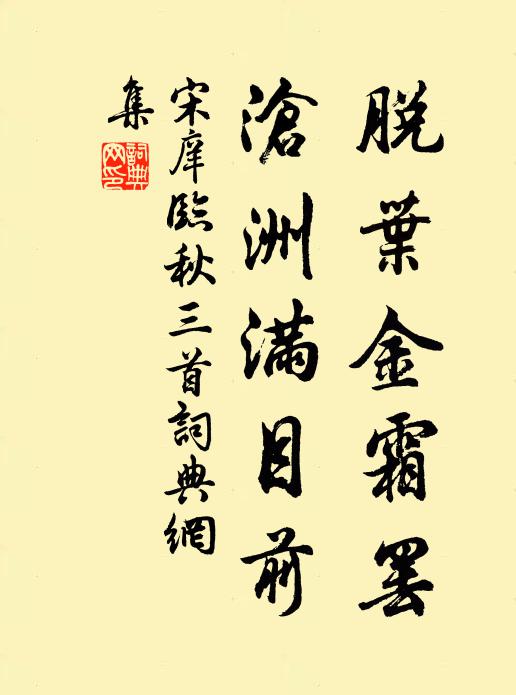 脱葉金霜罢
滄洲滿目前
宋庠臨秋三首詞典網
集
詞典網印